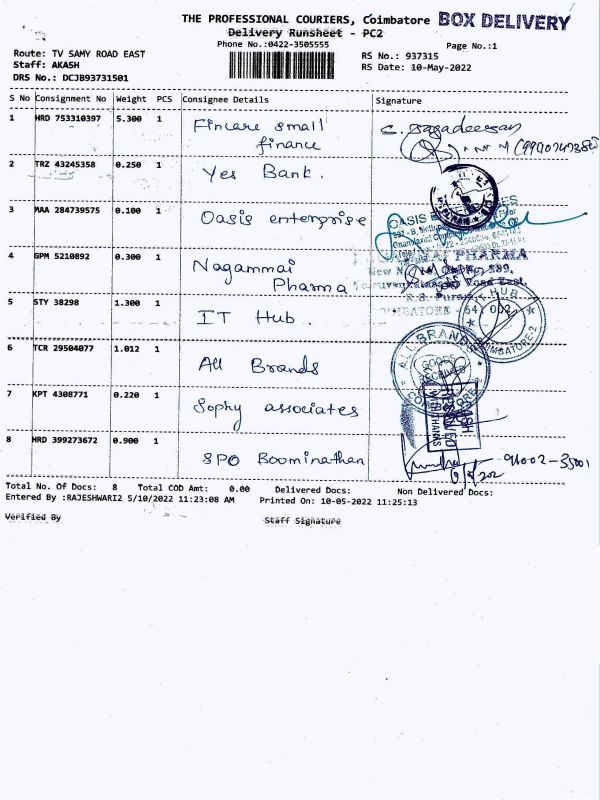 THE PROFESSIONAL COURIERS, Coimbatore BOX DELIVERY
Delivery Runsheet - PC2
Phone No.:0422-3505555
Page No.:1
Route: TV SAMY ROAD EAST
RS No.: 937315
Staff: AKASH
RS Date: 10-May-2022
DRS No.: DCJB93731501
S No Consignment No Weight PCS Consignee Details Signature
1 HRD 753310397 5.300 1 Fincare small
finance
2 TRZ 43245358 0.250 1 Yes Bank.
3 MAA 284739575 0.100 1 Oasis enterprise
OASIS
4 GPM 5210892 0.300 1 Nagammai
Pharma
PHARMA
5 STY 38298 1.300 1 IT Hub.
IT HUB
COIMBATORE-2
6 TCR 29504077 1.012 1 All Brands
ALL BRANDS
GOODS
RECEIVED
7 KPT 4308771 0.220 1 Sophy associates
8 HRD 399273672 0.900 1 SPO Boominathan
Total No. Of Docs: 8 Total COD Amt: 0.00 Delivered Docs: Non Delivered Docs:
Entered By :RAJESHWARI2 5/10/2022 11:23:08 AM Printed On: 10-05-2022 11:25:13
Verified By Staff Signature